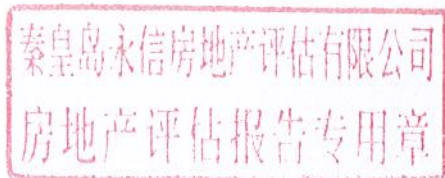 秦皇岛永信房地产评估有限公司
房地产评估报告专用章